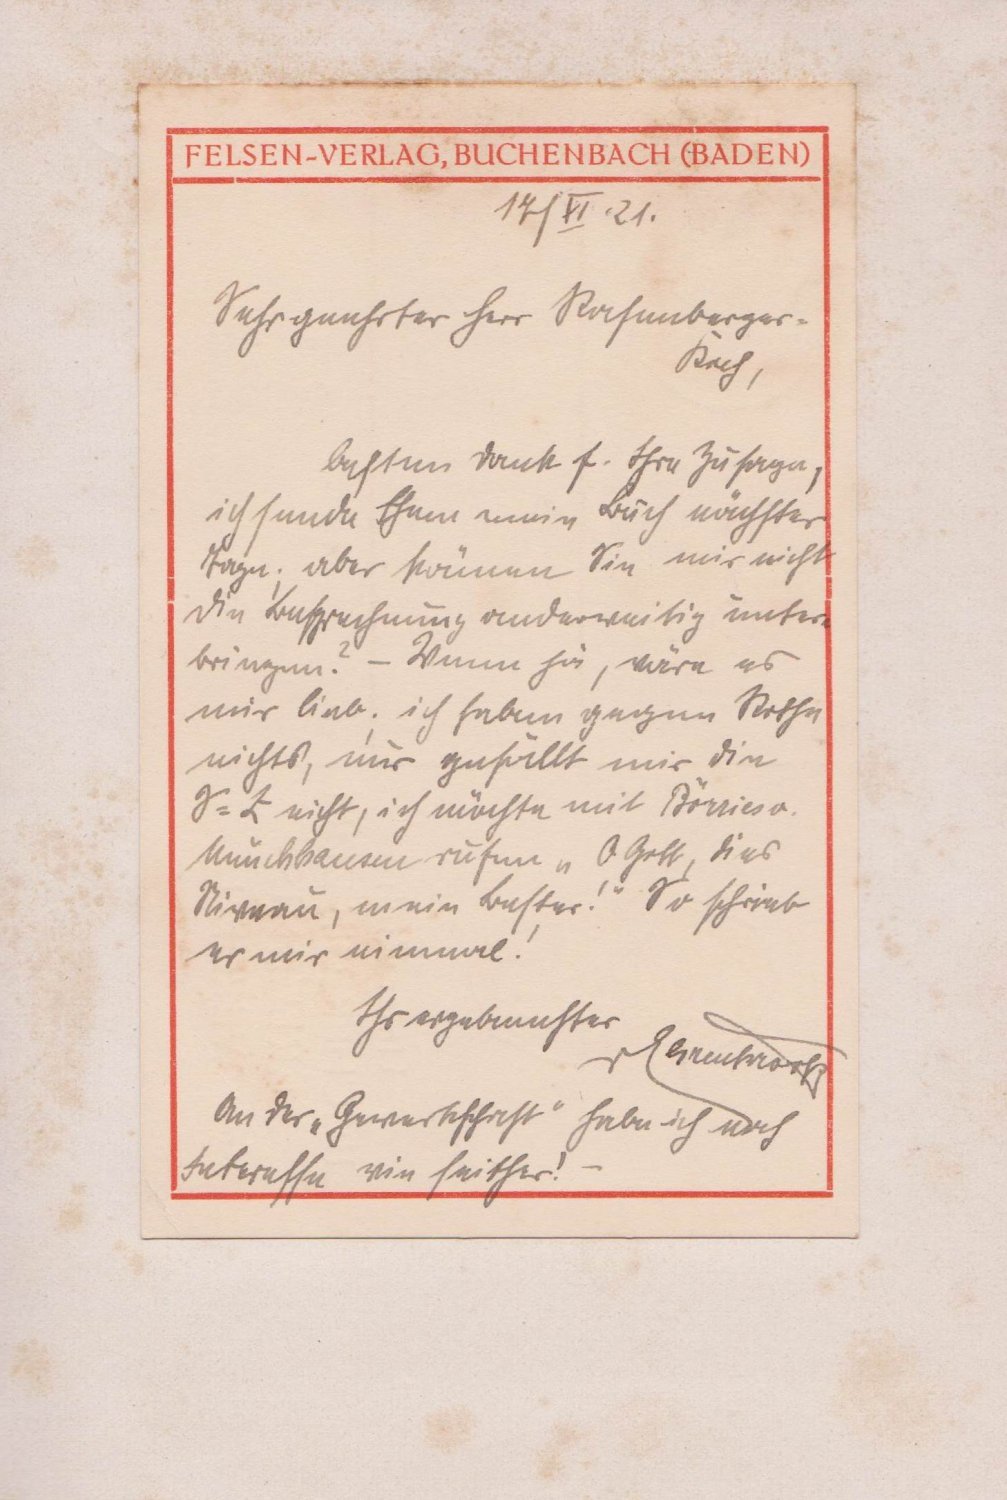 FELSEN-VERLAG, BUCHENBACH (BADEN)
17/VI.21.
Sehr geehrter Herr
Koch,
besten Dank f. Ihre Zusage,
ich sende Ihnen mein Buch nächster
Tage; aber können Sie mir nicht
die Besprechnung anderweitig unter-
bringen? – Wenn ja, wäre es
mir lieb; ich habe gegen
nichts, nur gefällt mir die
nicht, ich möchte mit Börries v.
Münchhausen rufen „O Gott, dies
Niveau, mein Bester!" So schrieb
er mir einmal!
Ihr ergebenster
An der „Gewerkschaft" habe ich noch
Interesse wie seither! –